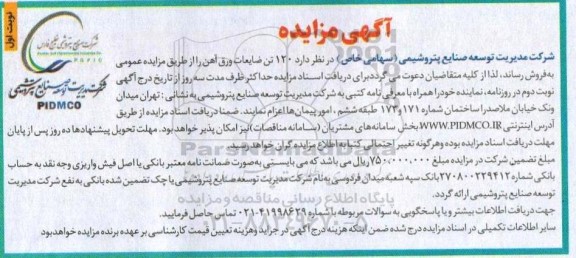 آگهی مزایده
نوبت اول
شرکت مدیریت توسعه صنایع پتروشیمی
PIDMCO
شرکت مدیریت توسعه صنایع پتروشیمی (سهامی خاص) در نظر دارد ۱۲۰ تن ضایعات ورق آهن را از طریق مزایده عمومی
به فروش رساند، لذا از کلیه متقاضیان دعوت می گردد برای دریافت اسناد مزایده حداکثر ظرف مدت سه روز از تاریخ درج آگهی
نوبت دوم در روزنامه، نماینده خود را همراه با معرفی نامه کتبی به شرکت مدیریت توسعه صنایع پتروشیمی به نشانی : تهران میدان
ونک خیابان ملاصدرا ساختمان شماره ۱۷۱ و ۱۷۳ طبقه ششم ، امور پیمان ها اعزام نمایند. ضمنا دریافت اسناد مزایده از طریق
آدرس اینترنتی WWW.PIDMCO.IR بخش سامانه های مشتریان (سامانه مناقصات) نیز امکان پذیر خواهد بود. مهلت تحویل پیشنهادها ده روز پس از پایان
مهلت دریافت اسناد مزایده بوده و هرگونه تغییر احتمالی کتبا به اطلاع مزایده گران خواهد رسید.
مبلغ تضمین شرکت در مزایده مبلغ ۷۵۰,۰۰۰,۰۰۰ ریال می باشد که می بایستی به صورت ضمانت نامه معتبر بانکی یا اصل فیش واریزی وجه نقد به حساب
بانکی شماره ۲۷۰۸۰۰۲۲۹۴۱۲ بانک سپه شعبه میدان فردوسی به نام شرکت مدیریت توسعه صنایع پتروشیمی یا چک تضمین شده بانکی به نفع شرکت مدیریت
توسعه صنایع پتروشیمی ارائه گردد.
جهت دریافت اطلاعات بیشتر و یا پاسخگویی به سوالات مربوطه با شماره ۴۱۹۹۸۶۲۹-۰۲۱ تماس حاصل فرمایید.
سایر اطلاعات تکمیلی در اسناد مزایده درج شده ضمن اینکه هزینه درج آگهی در جراید و هزینه تعیین قیمت کارشناسی بر عهده برنده مزایده خواهد بود
پایگاه اطلاع رسانی مناقصه و مزایده